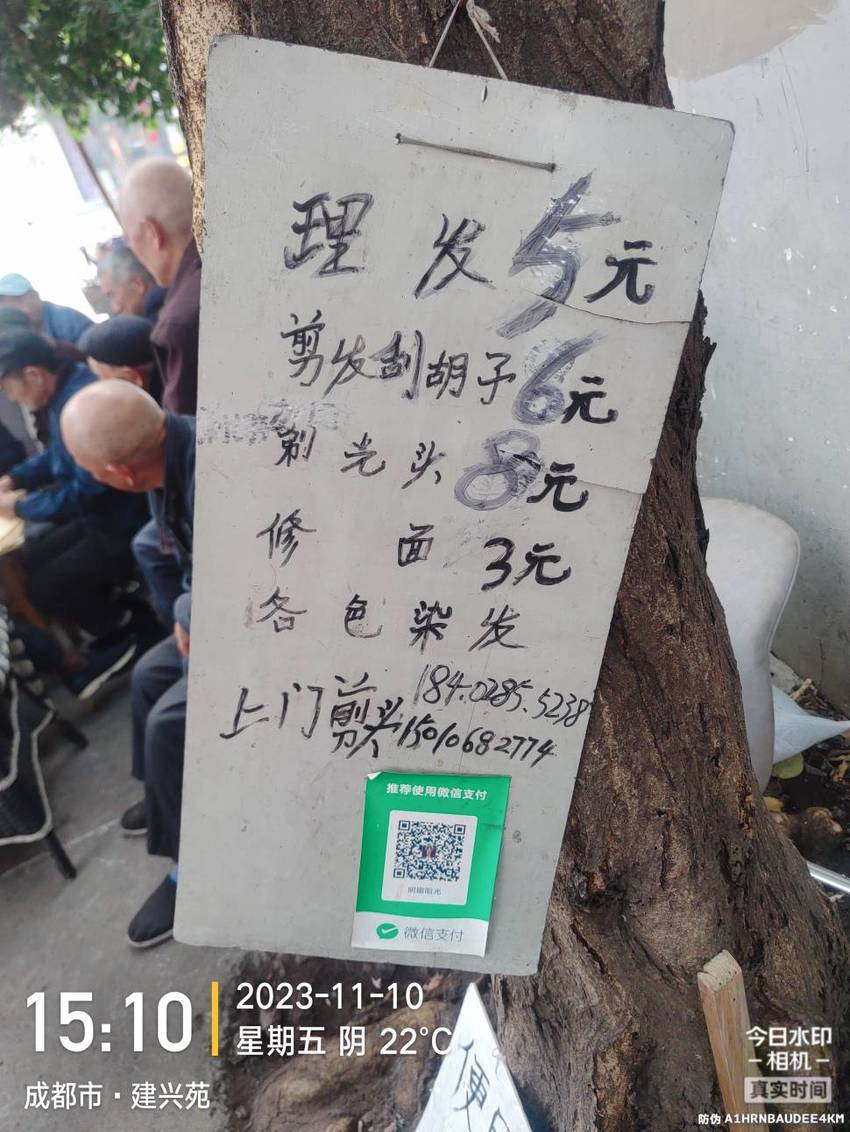 理发5元
剪发刮胡子6元
剃光头8元
修面3元
各色染发
上门剪头 184.0285.5238
15010682774
推荐使用微信支付
明媚阳光
微信支付
便
15:10
2023-11-10
星期五 阴 22°C
成都市·建兴苑
今日水印
-相机-
真实时间
防伪 A1HRNBAUDEE4KM